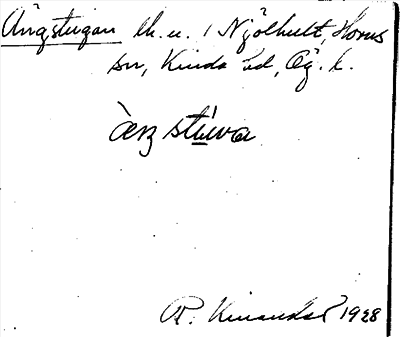 Ängstugan lh. u. / Njölhult, Horns
sn, Kinda hd, Ög. l.
àŋstu̲va
R. Kinander 1928